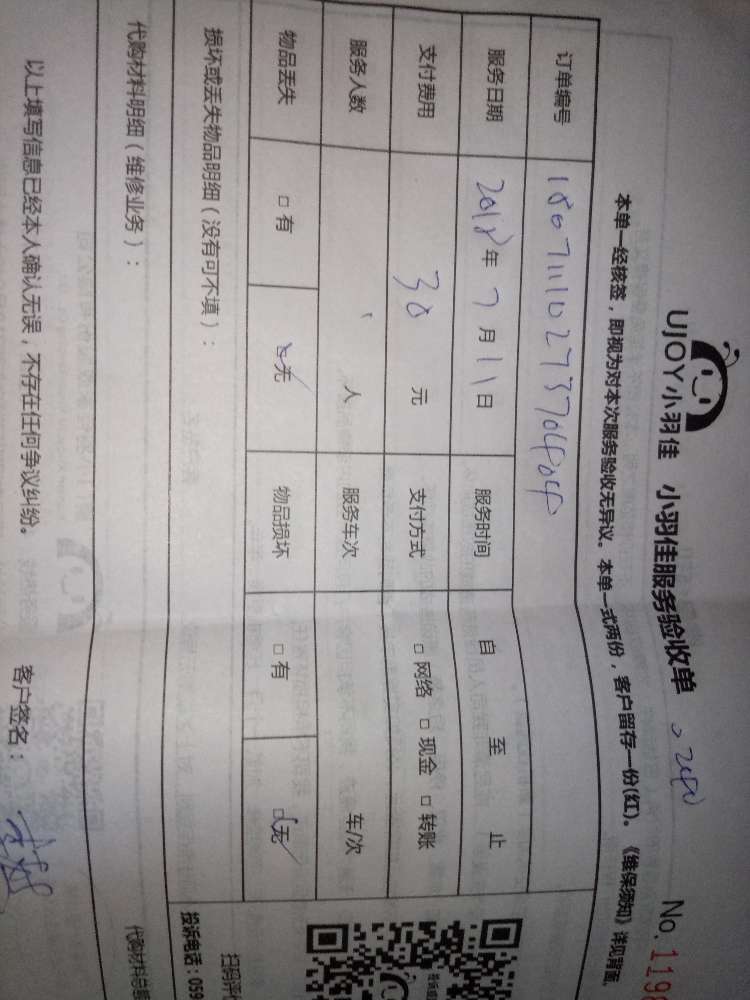 UJOY小羽佳 小羽佳服务验收单 No. 119
本单一经核签，即视为对本次服务验收无异议。本单一式两份，客户留存一份(红)。《维保须知》详见背面。
订单编号
服务日期 2018年7月11日 服务时间 自 至 止
支付费用 30 元 支付方式 □网络 □现金 □转账
服务人数 人 服务车次 车/次
物品丢失 □有 □无 物品损坏 □有 □无
损坏或丢失物品明细（没有可不填）：
扫码评
投诉电话：059
代购材料明细（维修业务）：
代购材料总
以上填写信息已经本人确认无误，不存在任何争议纠纷。 客户签名：